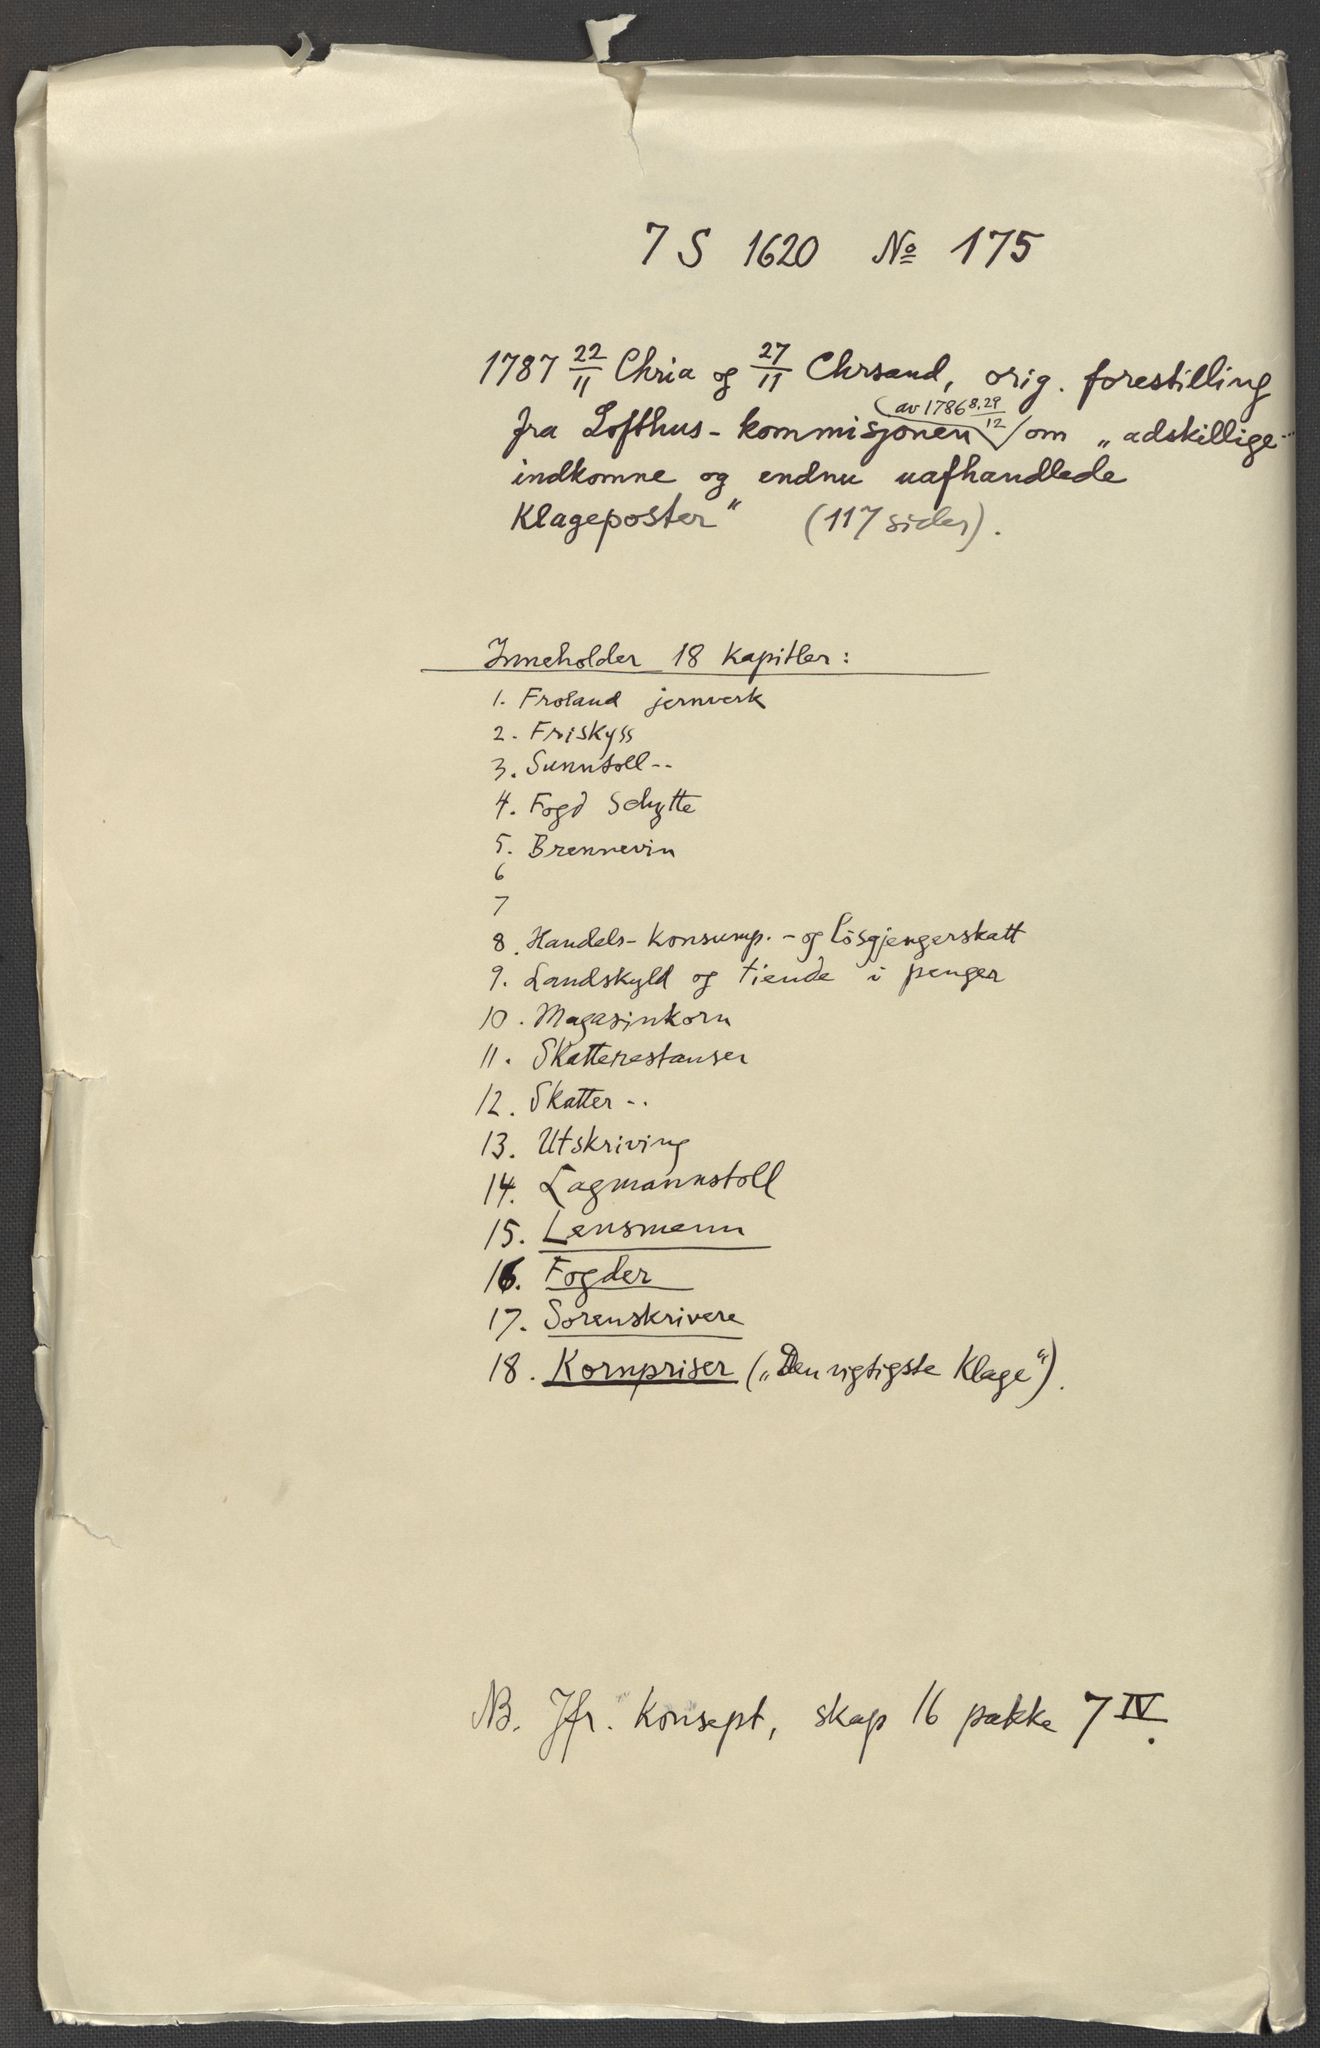 7 S 1620 No 175
1787 22/11 Chria og 27/11 Chrsand, orig. forestilling
fra Lofthus-kommisjonen (av 1786 8.29/12) om „adskillige
indkomne og endnu uafhandlede
Klageposter" (117 sider).
Inneholder 18 kapitler:
1. Froland jernverk
2. Friskyss
3. Sunntoll--
4. Fogd Schytte
5. Brennevin
6
7
8. Handels- konsump.- og lösgjengerskatt
9. Landskyld og tiende i penger
10. Magasinkorn
11. Skatterestanser
12. Skatter --
13. Utskriving
14. Lagmannstoll
15. Lensmenn
16. Fogder
17. Sorenskrivere
18. Kornpriser („Den vigtigste Klage").
NB. Jfr. Konsept, skap 16 pakke 7 IV.